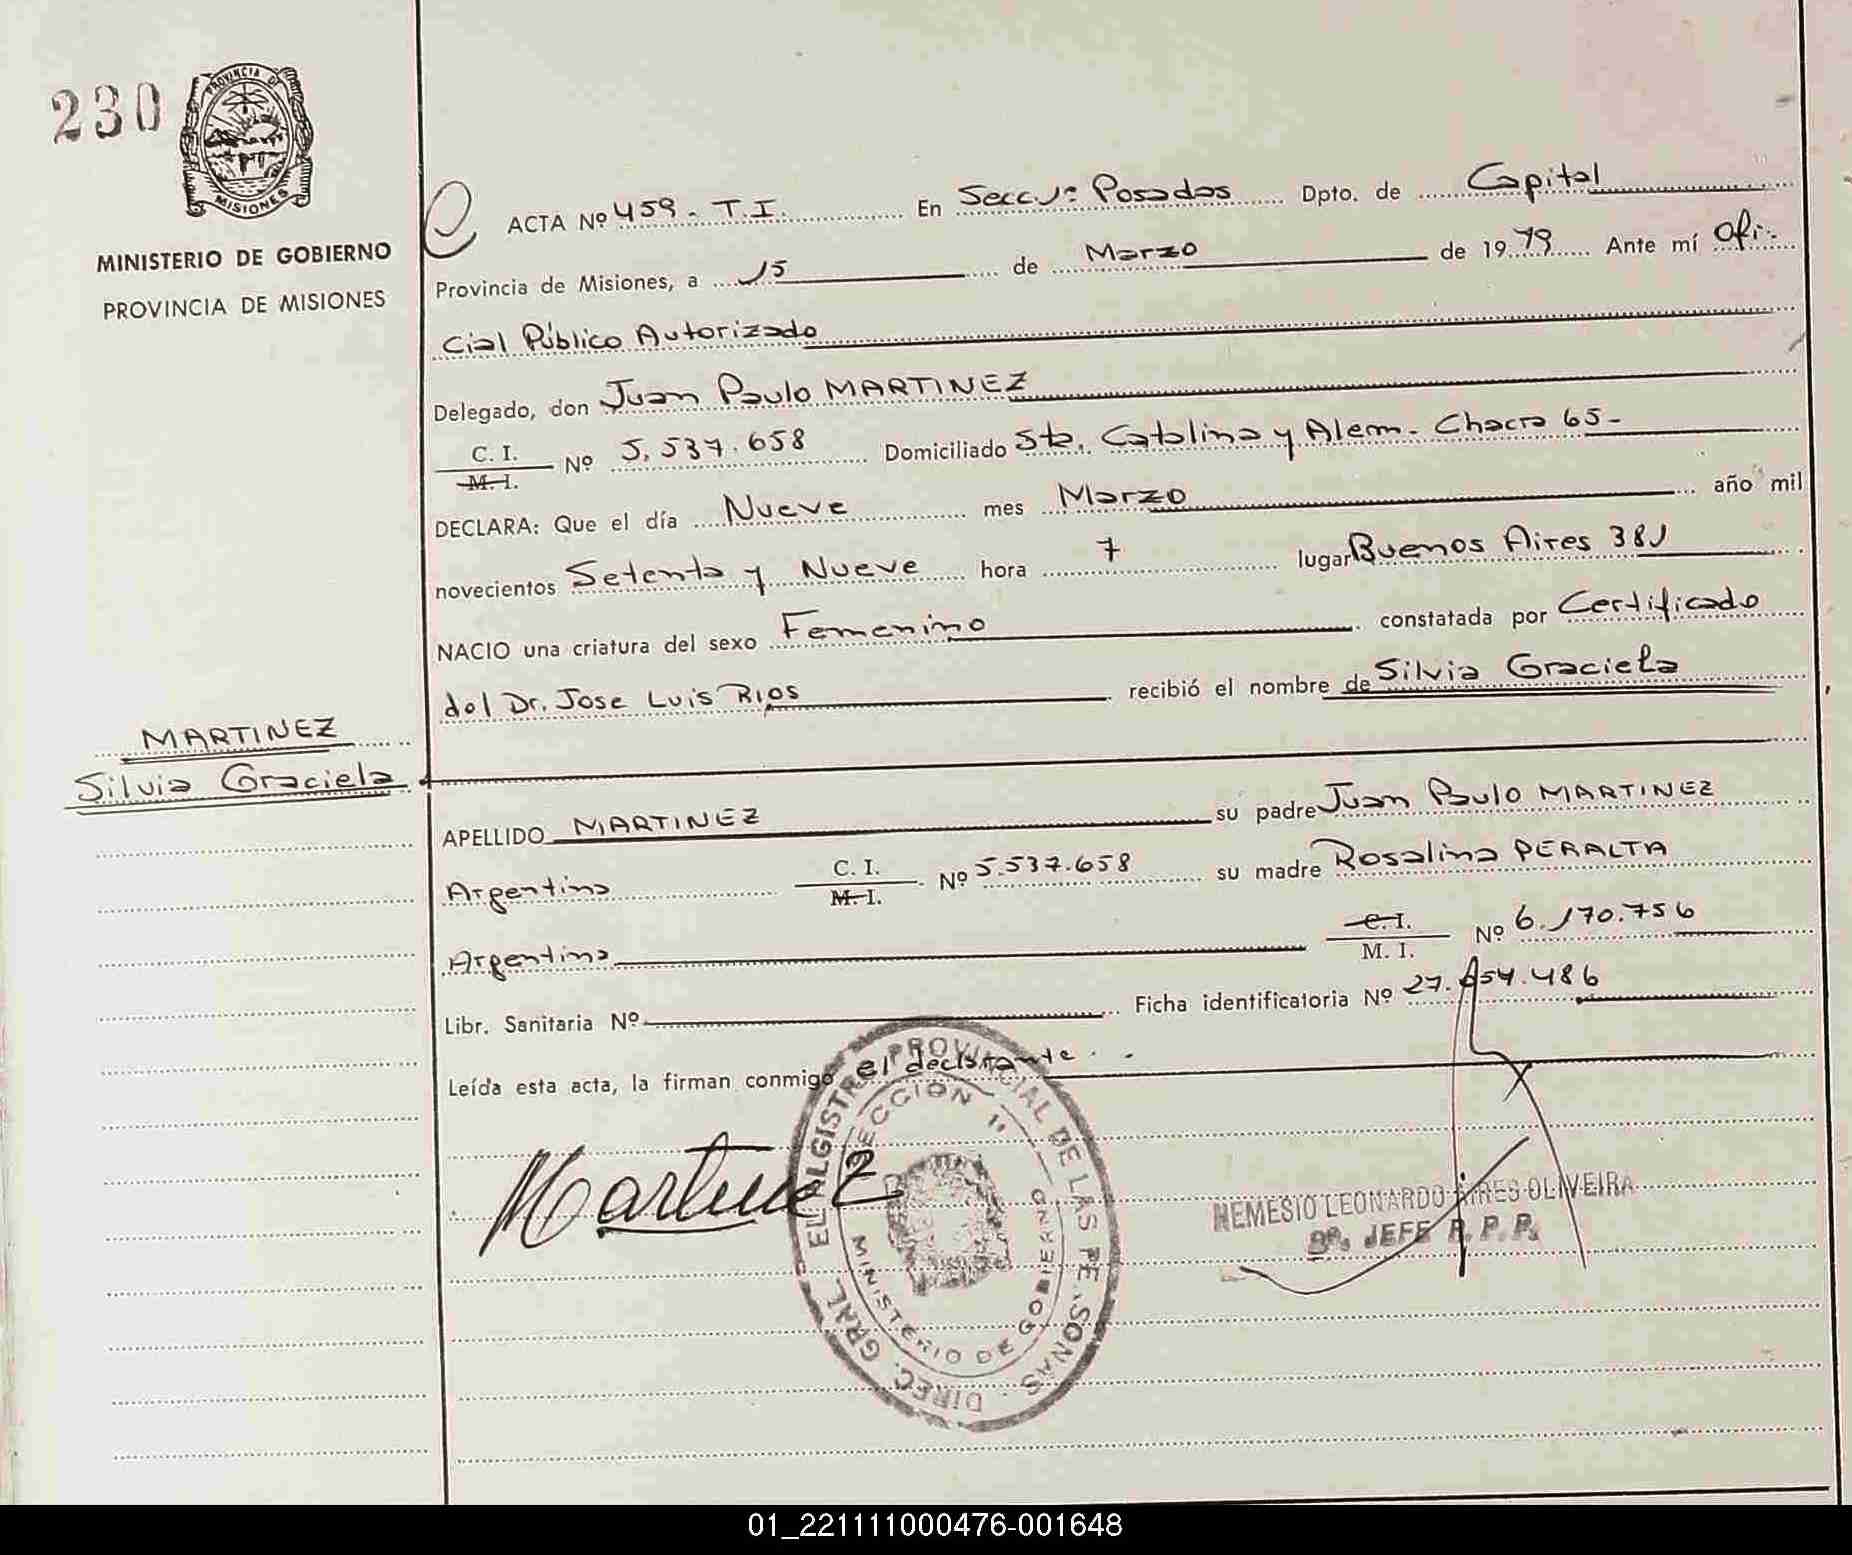 230
PROVINCIA DE
MISIONES
MINISTERIO DE GOBIERNO
PROVINCIA DE MISIONES
ACTA Nº 459 - T.I. En Secc 1ª Posadas Dpto. de Capital
Provincia de Misiones, a 15 de Marzo de 1979 Ante mí Ofi-
cial Público Autorizado
Delegado, don Juan Paulo MARTINEZ
C. I. Nº 5.537.658 Domiciliado Sta. Catalina y Alem - Chacra 65-
M. I.
DECLARA: Que el día Nueve mes Marzo año mil
novecientos Setenta y Nueve hora 7 lugar Buenos Aires 381
NACIO una criatura del sexo Femenino constatada por Certificado
del Dr. Jose Luis Rios recibió el nombre de Silvia Graciela
MARTINEZ
Silvia Graciela
APELLIDO MARTINEZ su padre Juan Paulo MARTINEZ
Argentino C. I. Nº 5.537.658 su madre Rosalina PERALTA
M. I.
Argentina C. I. Nº 6.170.756
M. I.
Libr. Sanitaria Nº Ficha identificatoria Nº 27. 486
Leída esta acta, la firman conmigo el declarante.
Martinez
DIREC. GRAL. EL REGISTRO PROVINCIAL DE LAS PERSONAS
SECCION 1ª
MINISTERIO DE GOBIERNO
NEMESIO LEONARDO AIRES OLIVEIRA
JEFE R. P. P.
01_221111000476-001648